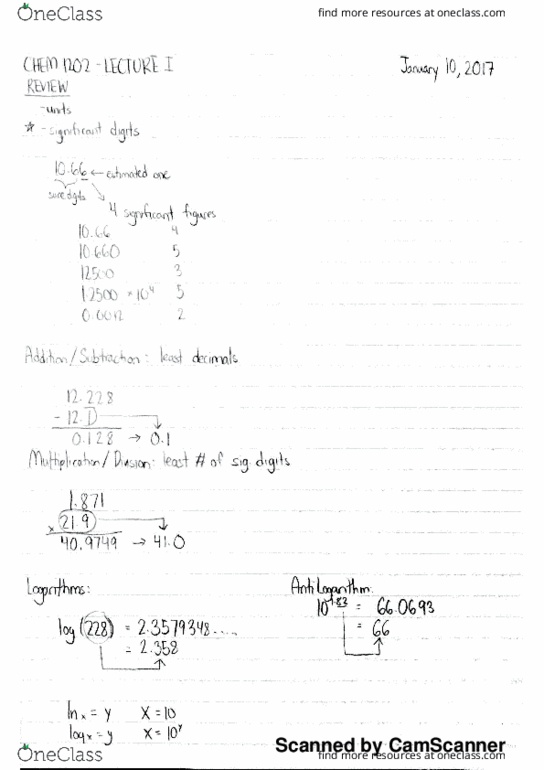 OneClass
find more resources at oneclass.com
CHEM 1202 - LECTURE I
January 10, 2017
REVIEW
-units
☆ - significant digits
10.66 ← estimated one
sure digits
4 significant figures
10.66 4
10.660 5
12500 3
1.2500 × 10⁴ 5
0.0012 2
Addition/Subtraction: least decimals
12.228
- 12.1
0.128 → 0.1
Multiplication/Division: least # of sig digits
1.871
× 21.9
40.9749 → 41.0
Logarithms:
log (228) = 2.3579348....
= 2.358
Anti Logarithm:
10^1.82 = 66.0693
= 66
ln x = y X = 10
log x = y X = 10^y
Scanned by CamScanner
OneClass
find more resources at oneclass.com